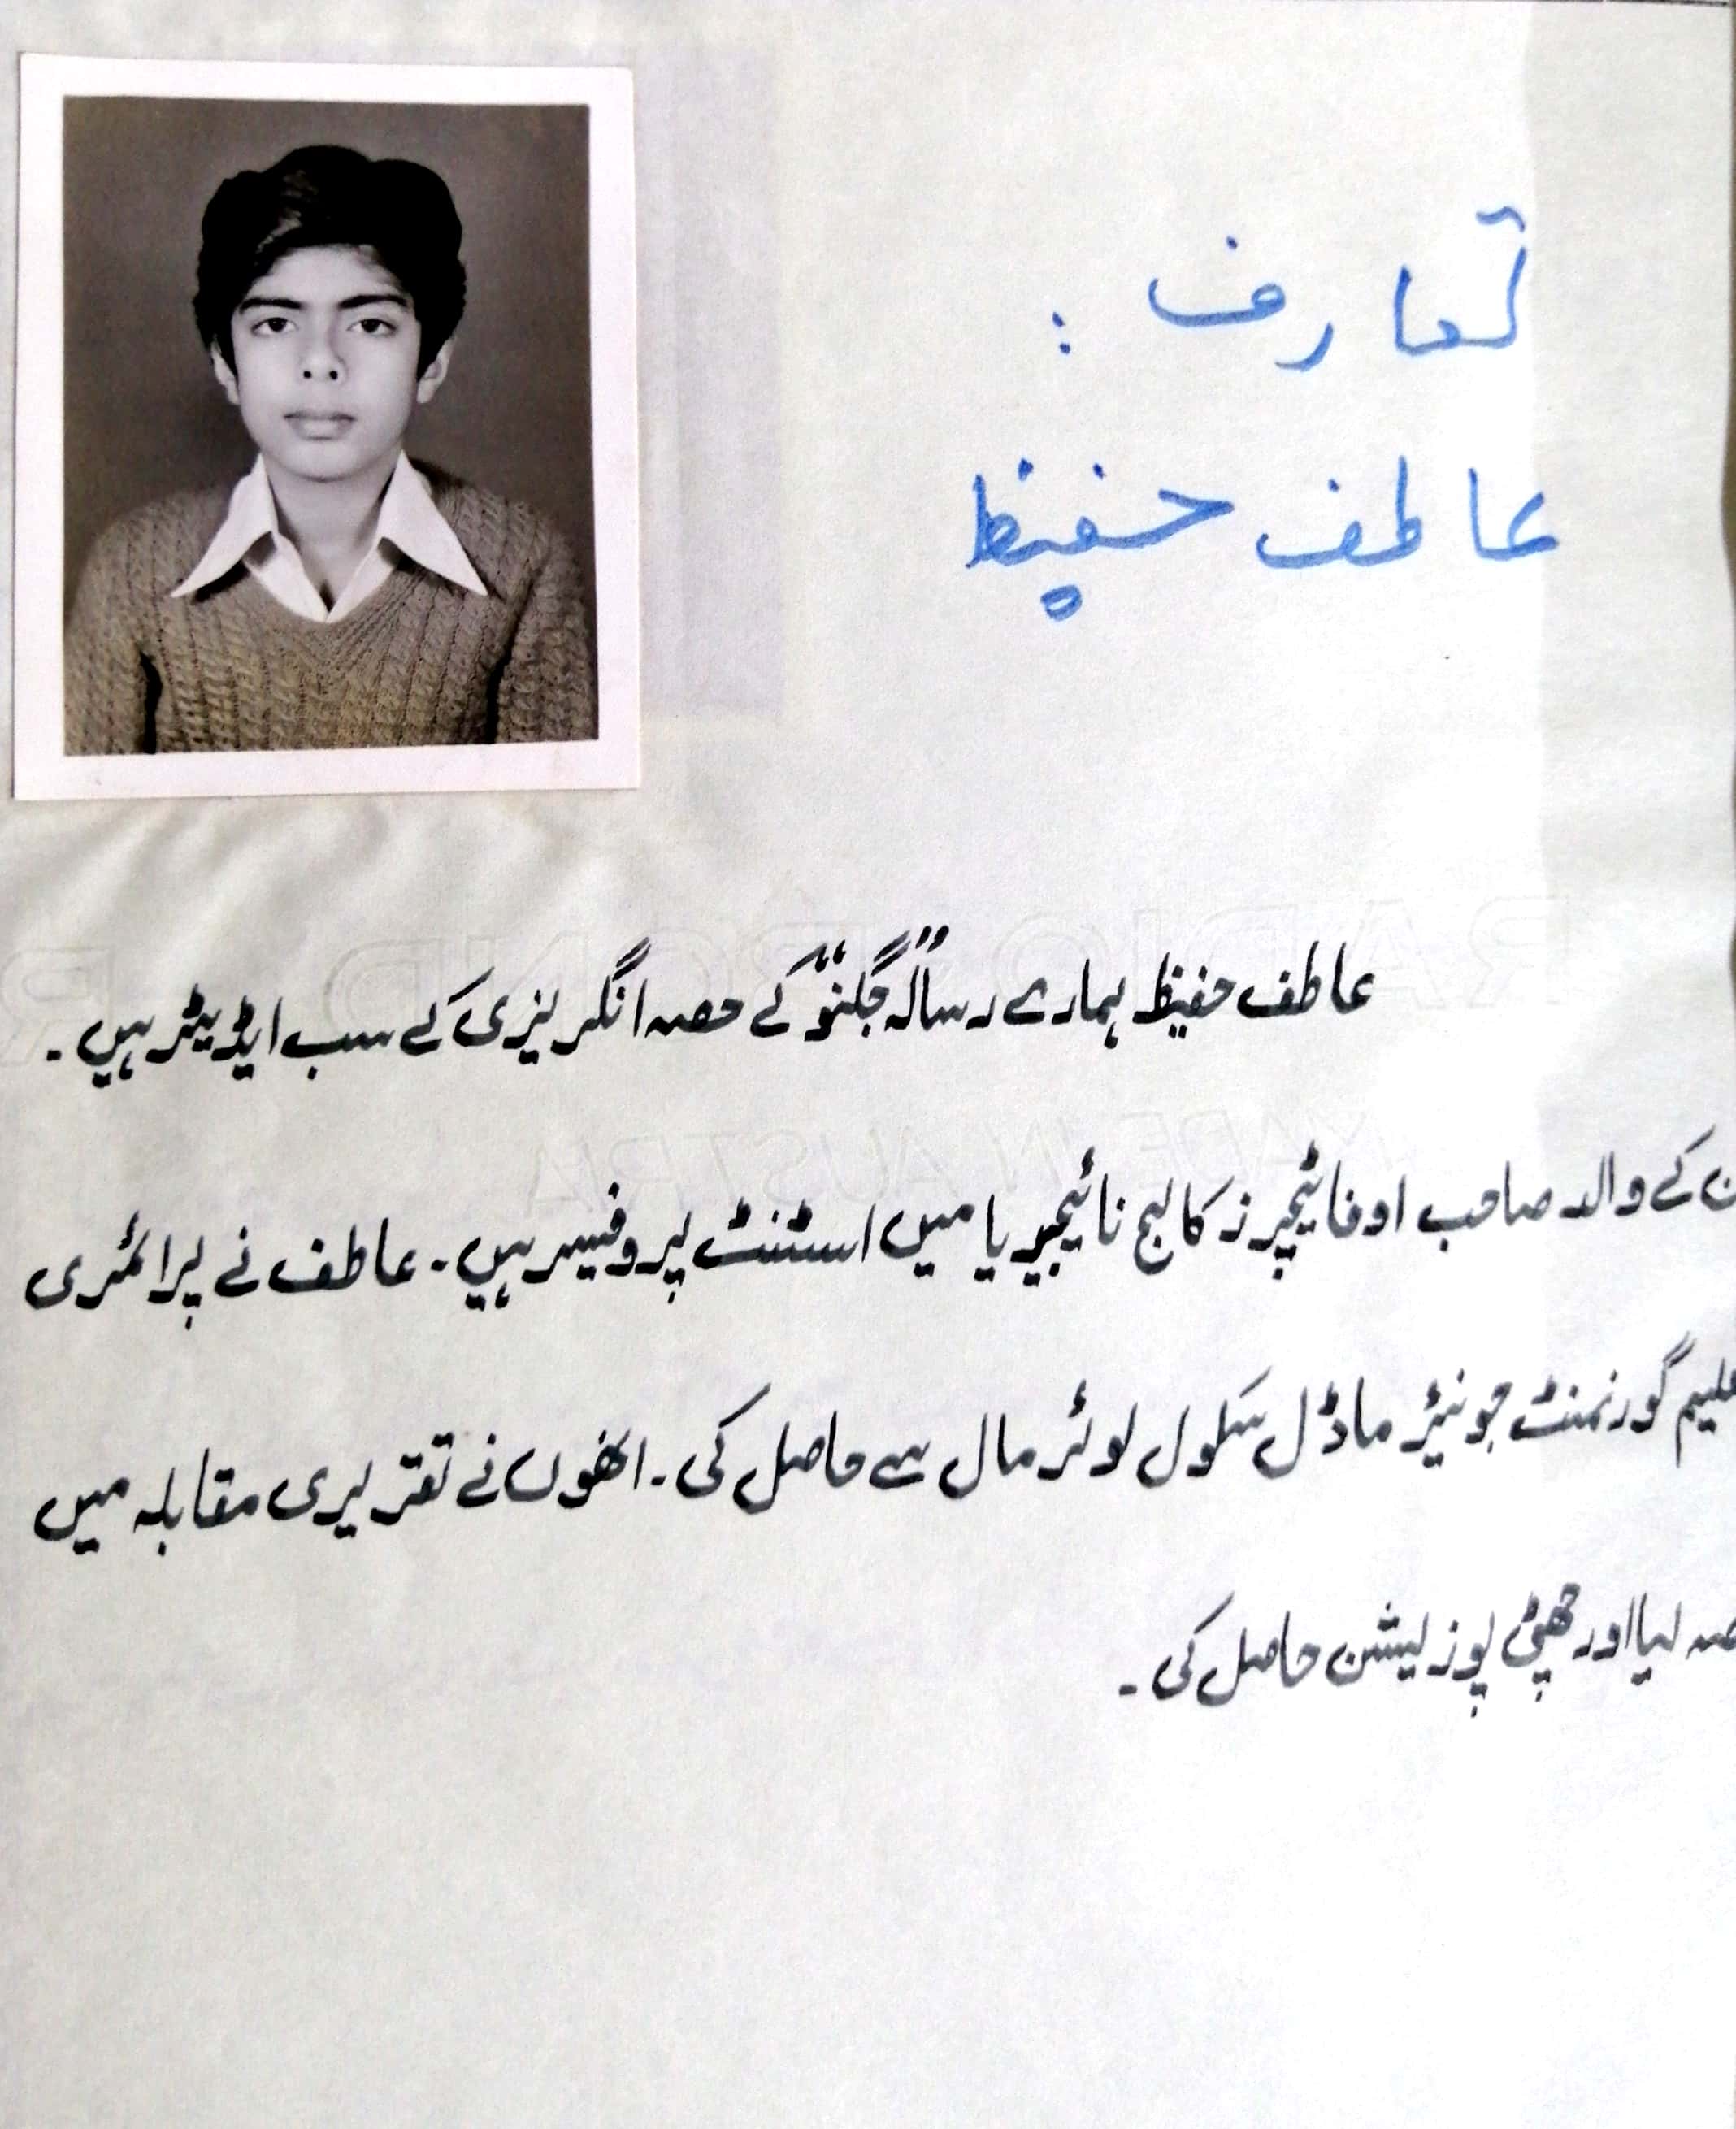 تعارف :
عاطف حفیظ
عاطف حفیظ ہمارے رسالہ "جگنو" کے حصہ انگریزی کے سب ایڈیٹر ہیں ۔
ن کے والد صاحب اوفا ٹیچرز کالج نائیجیریا میں اسٹنٹ پروفیسر ہیں ۔ عاطف نے پرائمری
علیم گورنمنٹ جونیئر ماڈل سکول لوئر مال سے حاصل کی ۔ انھوں نے تقریری مقابلہ میں
صہ لیا اور چھٹی پوزیشن حاصل کی ۔
RADIO BOND R
MADE IN AUSTRIA